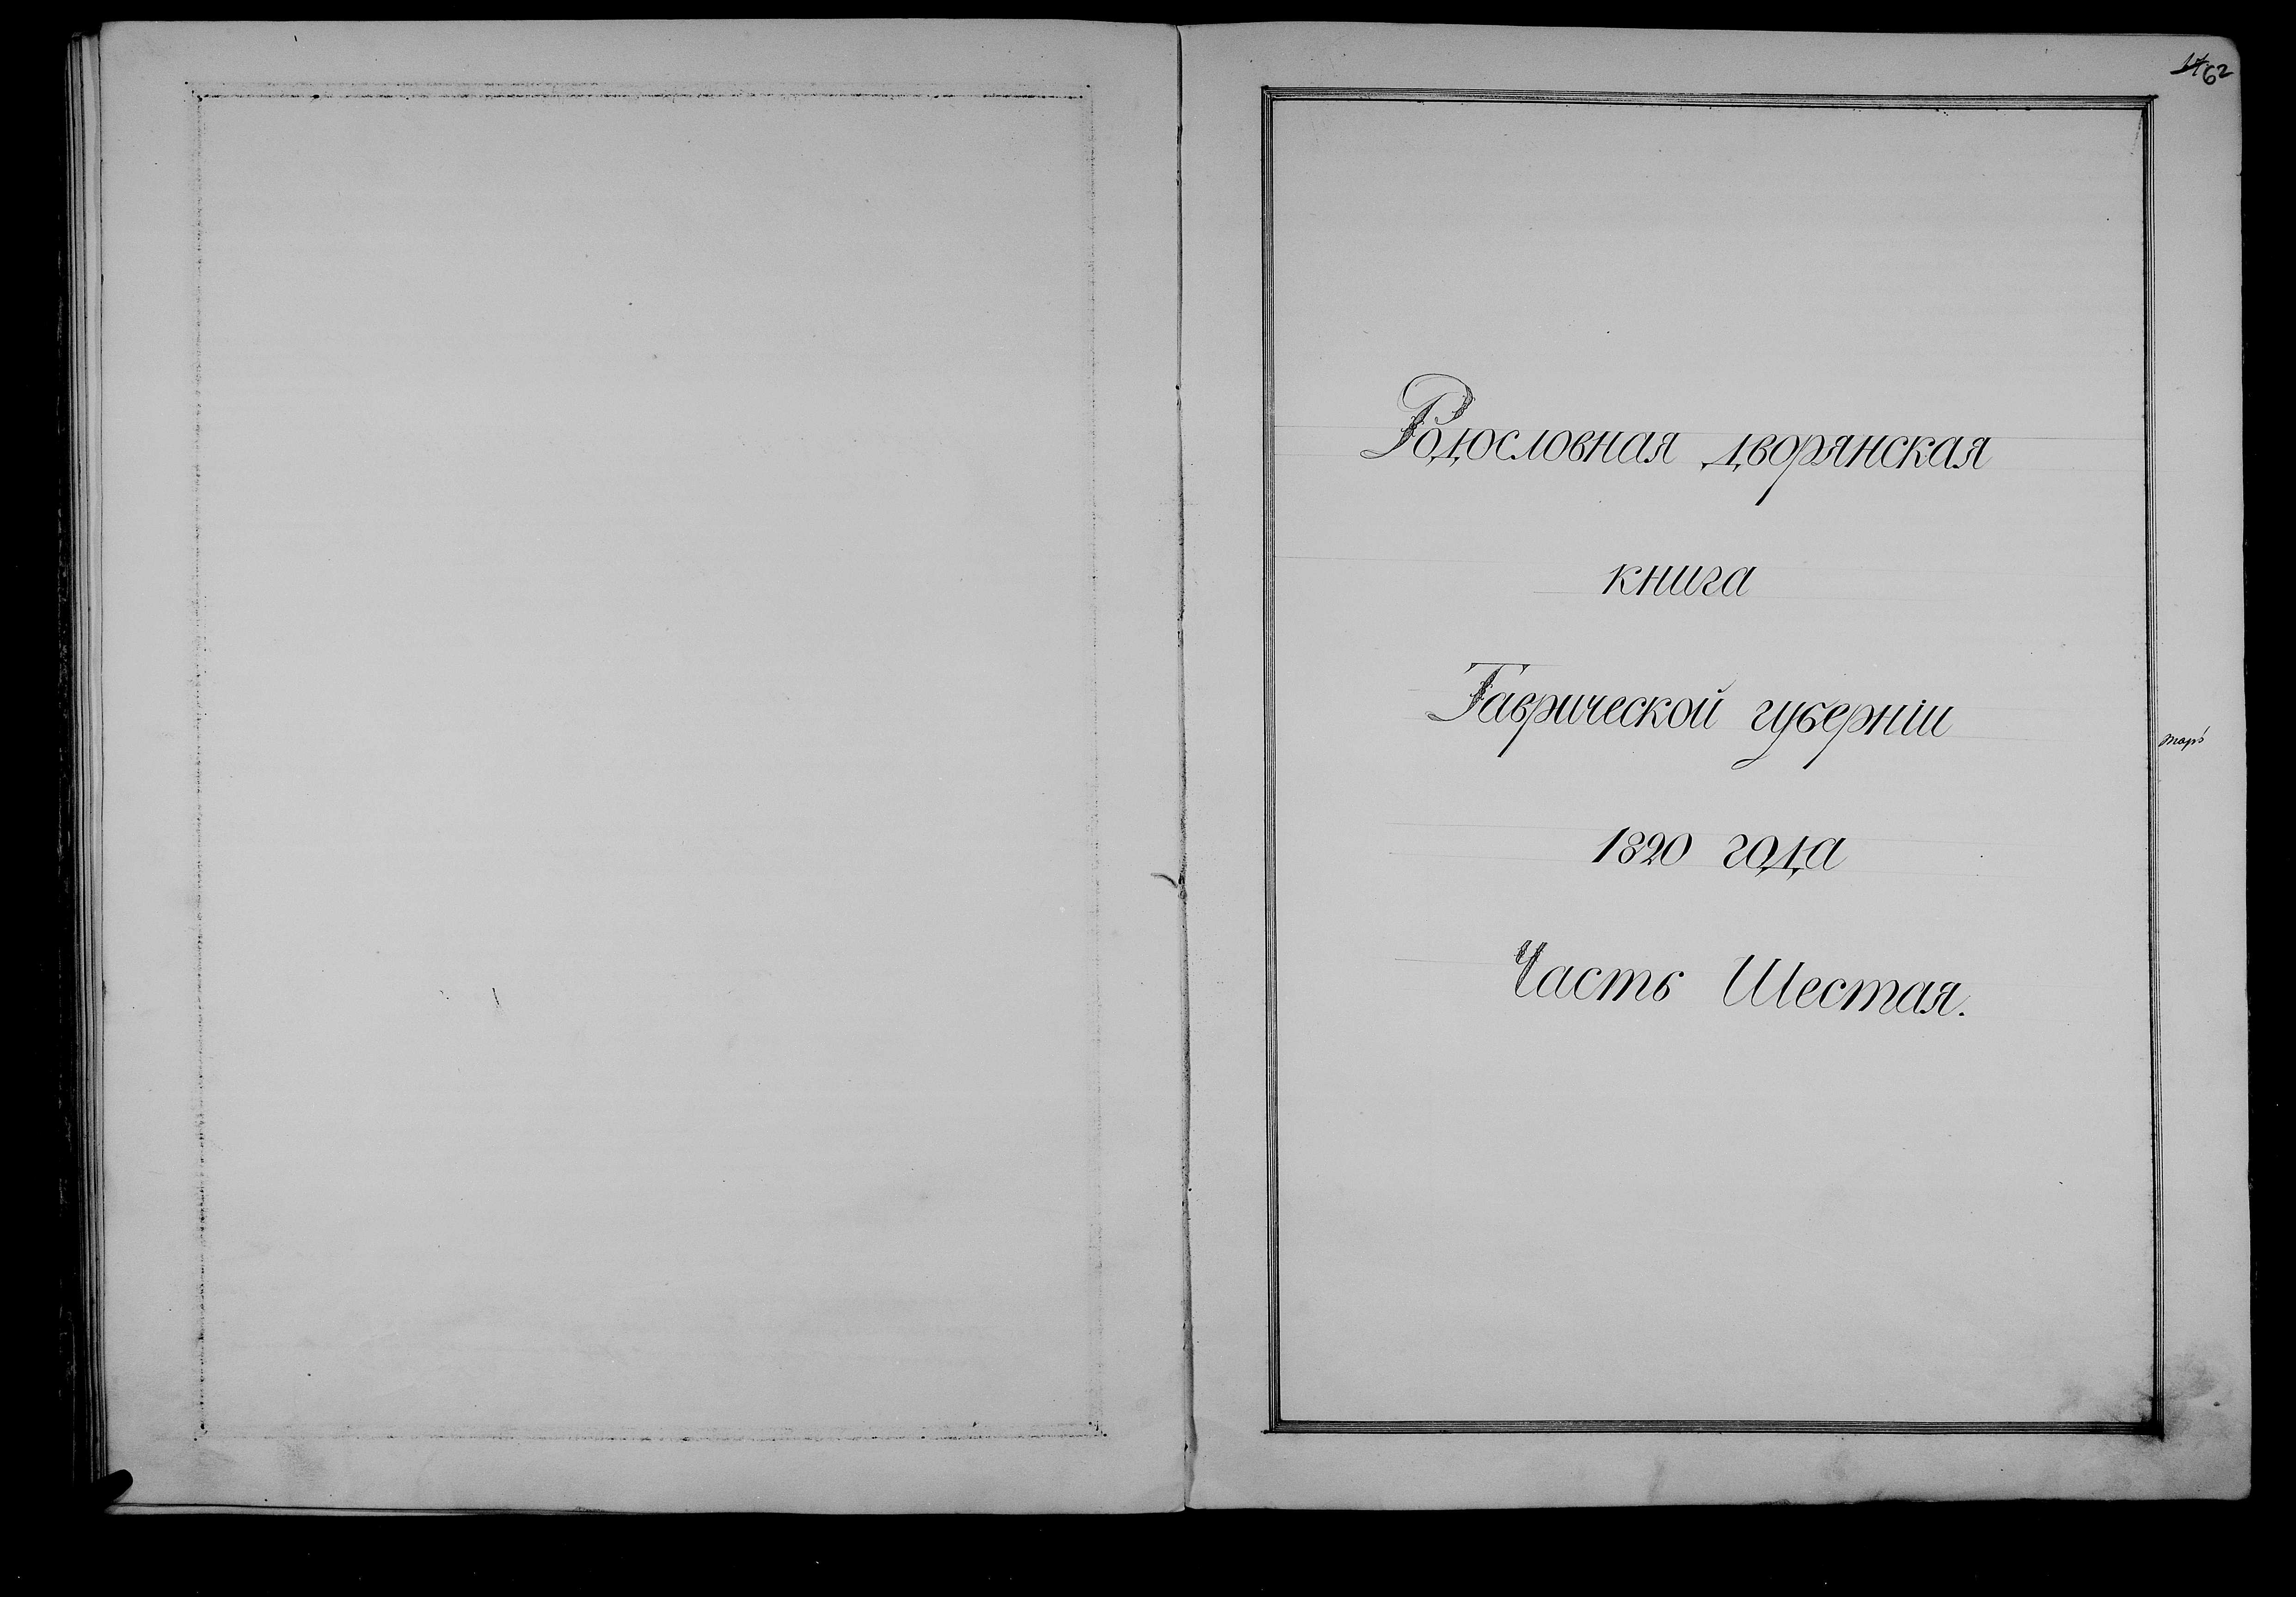 62
Родословная дворянская
книга
Таврической губернiи
1820 года
Часть Шестая.